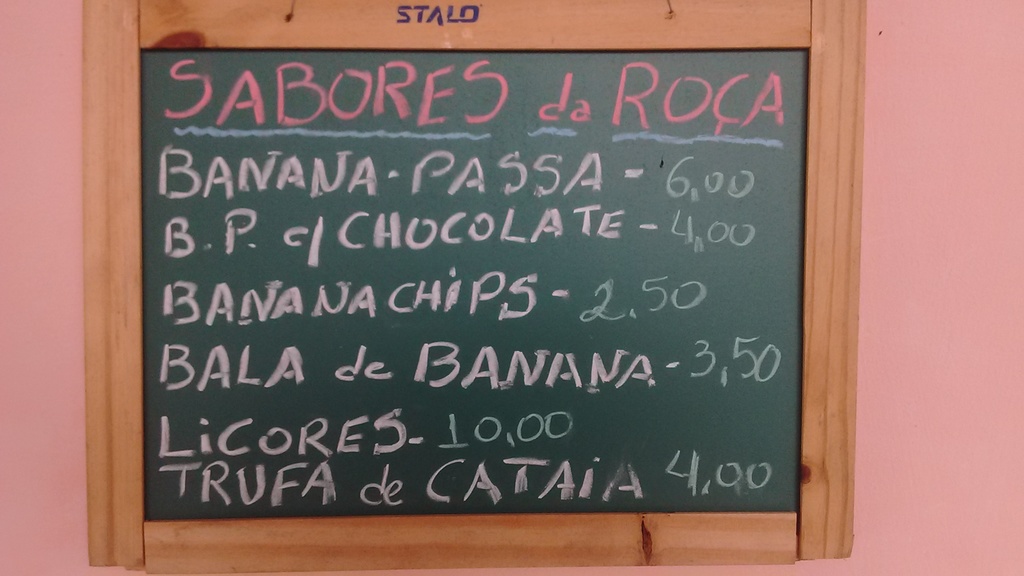 STALO
SABORES da ROÇA
BANANA-PASSA - 6,00
B.P. c/ CHOCOLATE - 4,00
BANANA CHiPS - 2.50
BALA de BANANA - 3,50
LiCORES - 10,00
TRUFA de CATAiA 4,00